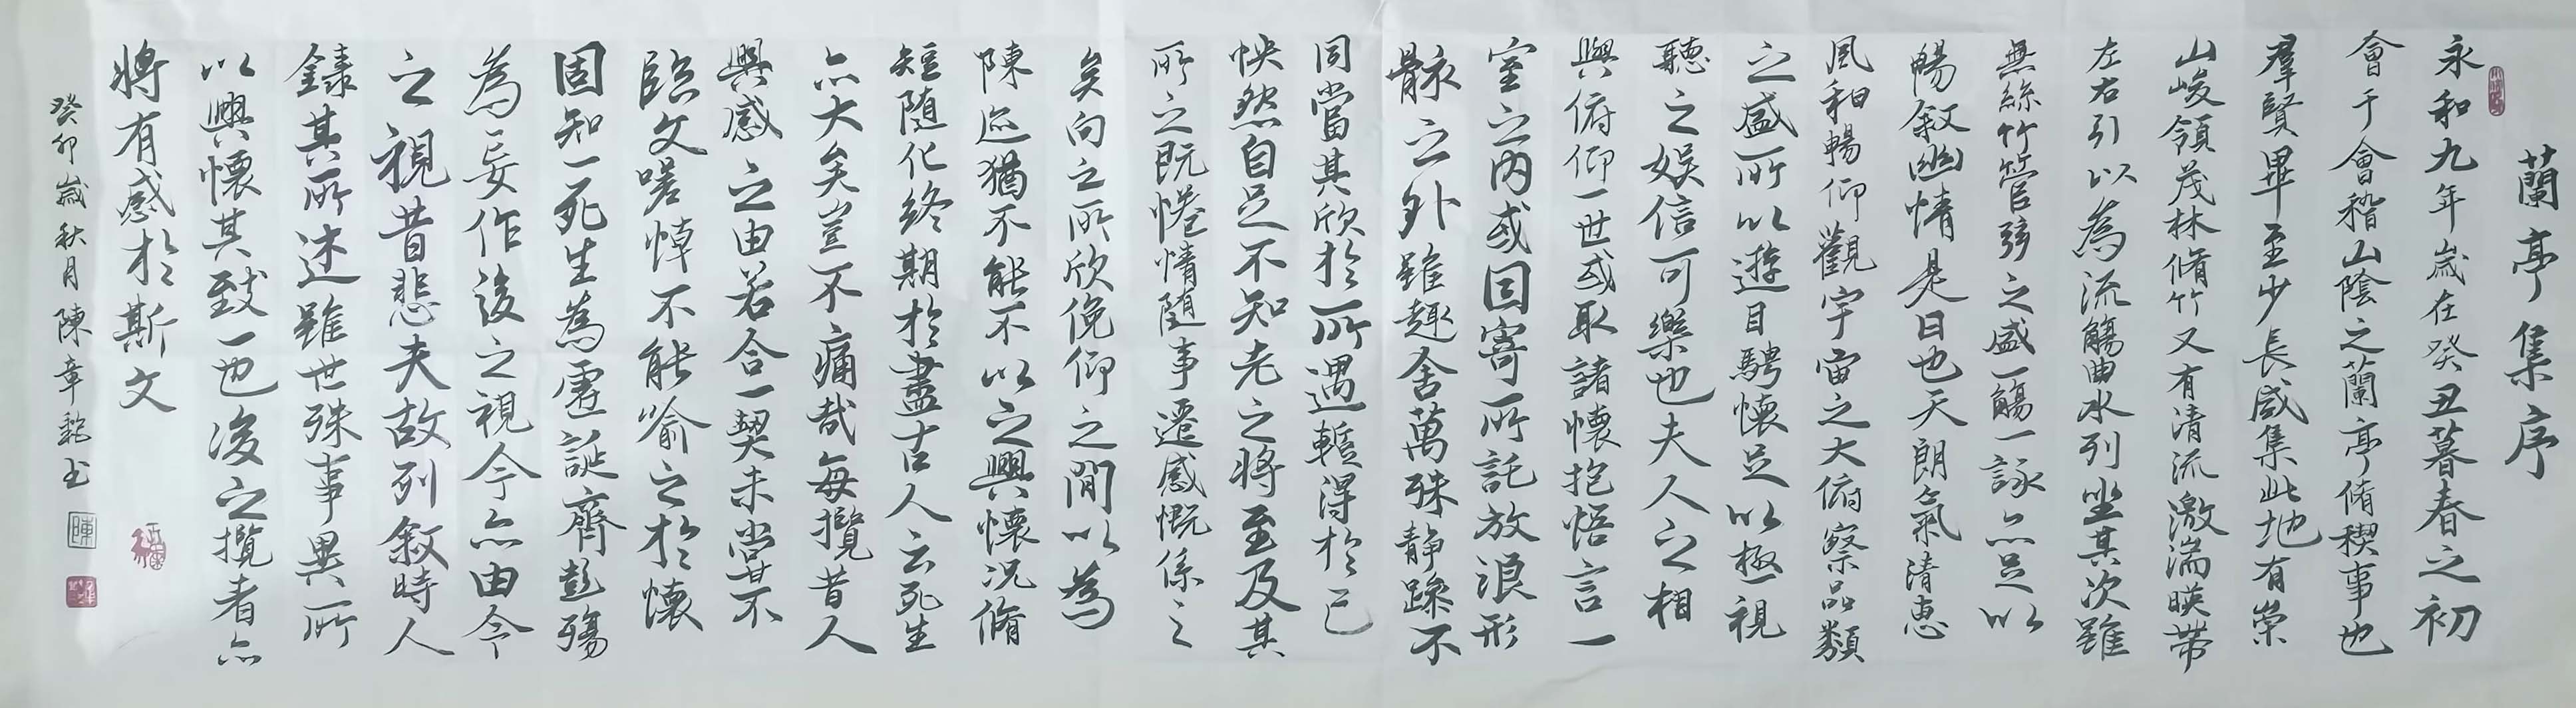 蘭亭集序
永和九年歲在癸丑暮春之初
會于會稽山陰之蘭亭脩稧事也
羣賢畢至少長咸集此地有崇
山峻領茂林脩竹又有清流激湍暎帶
左右引以為流觴曲水列坐其次雖
無絲竹管弦之盛一觴一詠亦足以
暢敘幽情是日也天朗氣清惠
風和暢仰觀宇宙之大俯察品類
之盛所以遊目騁懷足以極視
聽之娛信可樂也夫人之相
與俯仰一世或取諸懷抱悟言一
室之內或因寄所託放浪形
骸之外雖趣舍萬殊靜躁不
同當其欣於所遇蹔得於己
怏然自足不知老之將至及其
所之既惓情隨事遷感慨係之
矣向之所欣俛仰之閒以為
陳迹猶不能不以之興懷況脩
短隨化終期於盡古人云死生
亦大矣豈不痛哉每攬昔人
興感之由若合一契未嘗不
臨文嗟悼不能喻之於懷
固知一死生為虛誕齊彭殤
為妄作後之視今亦由今
之視昔悲夫故列敘時人
錄其所述雖世殊事異所
以興懷其致一也後之攬者亦
將有感於斯文
癸卯歲秋月陳章書
陳